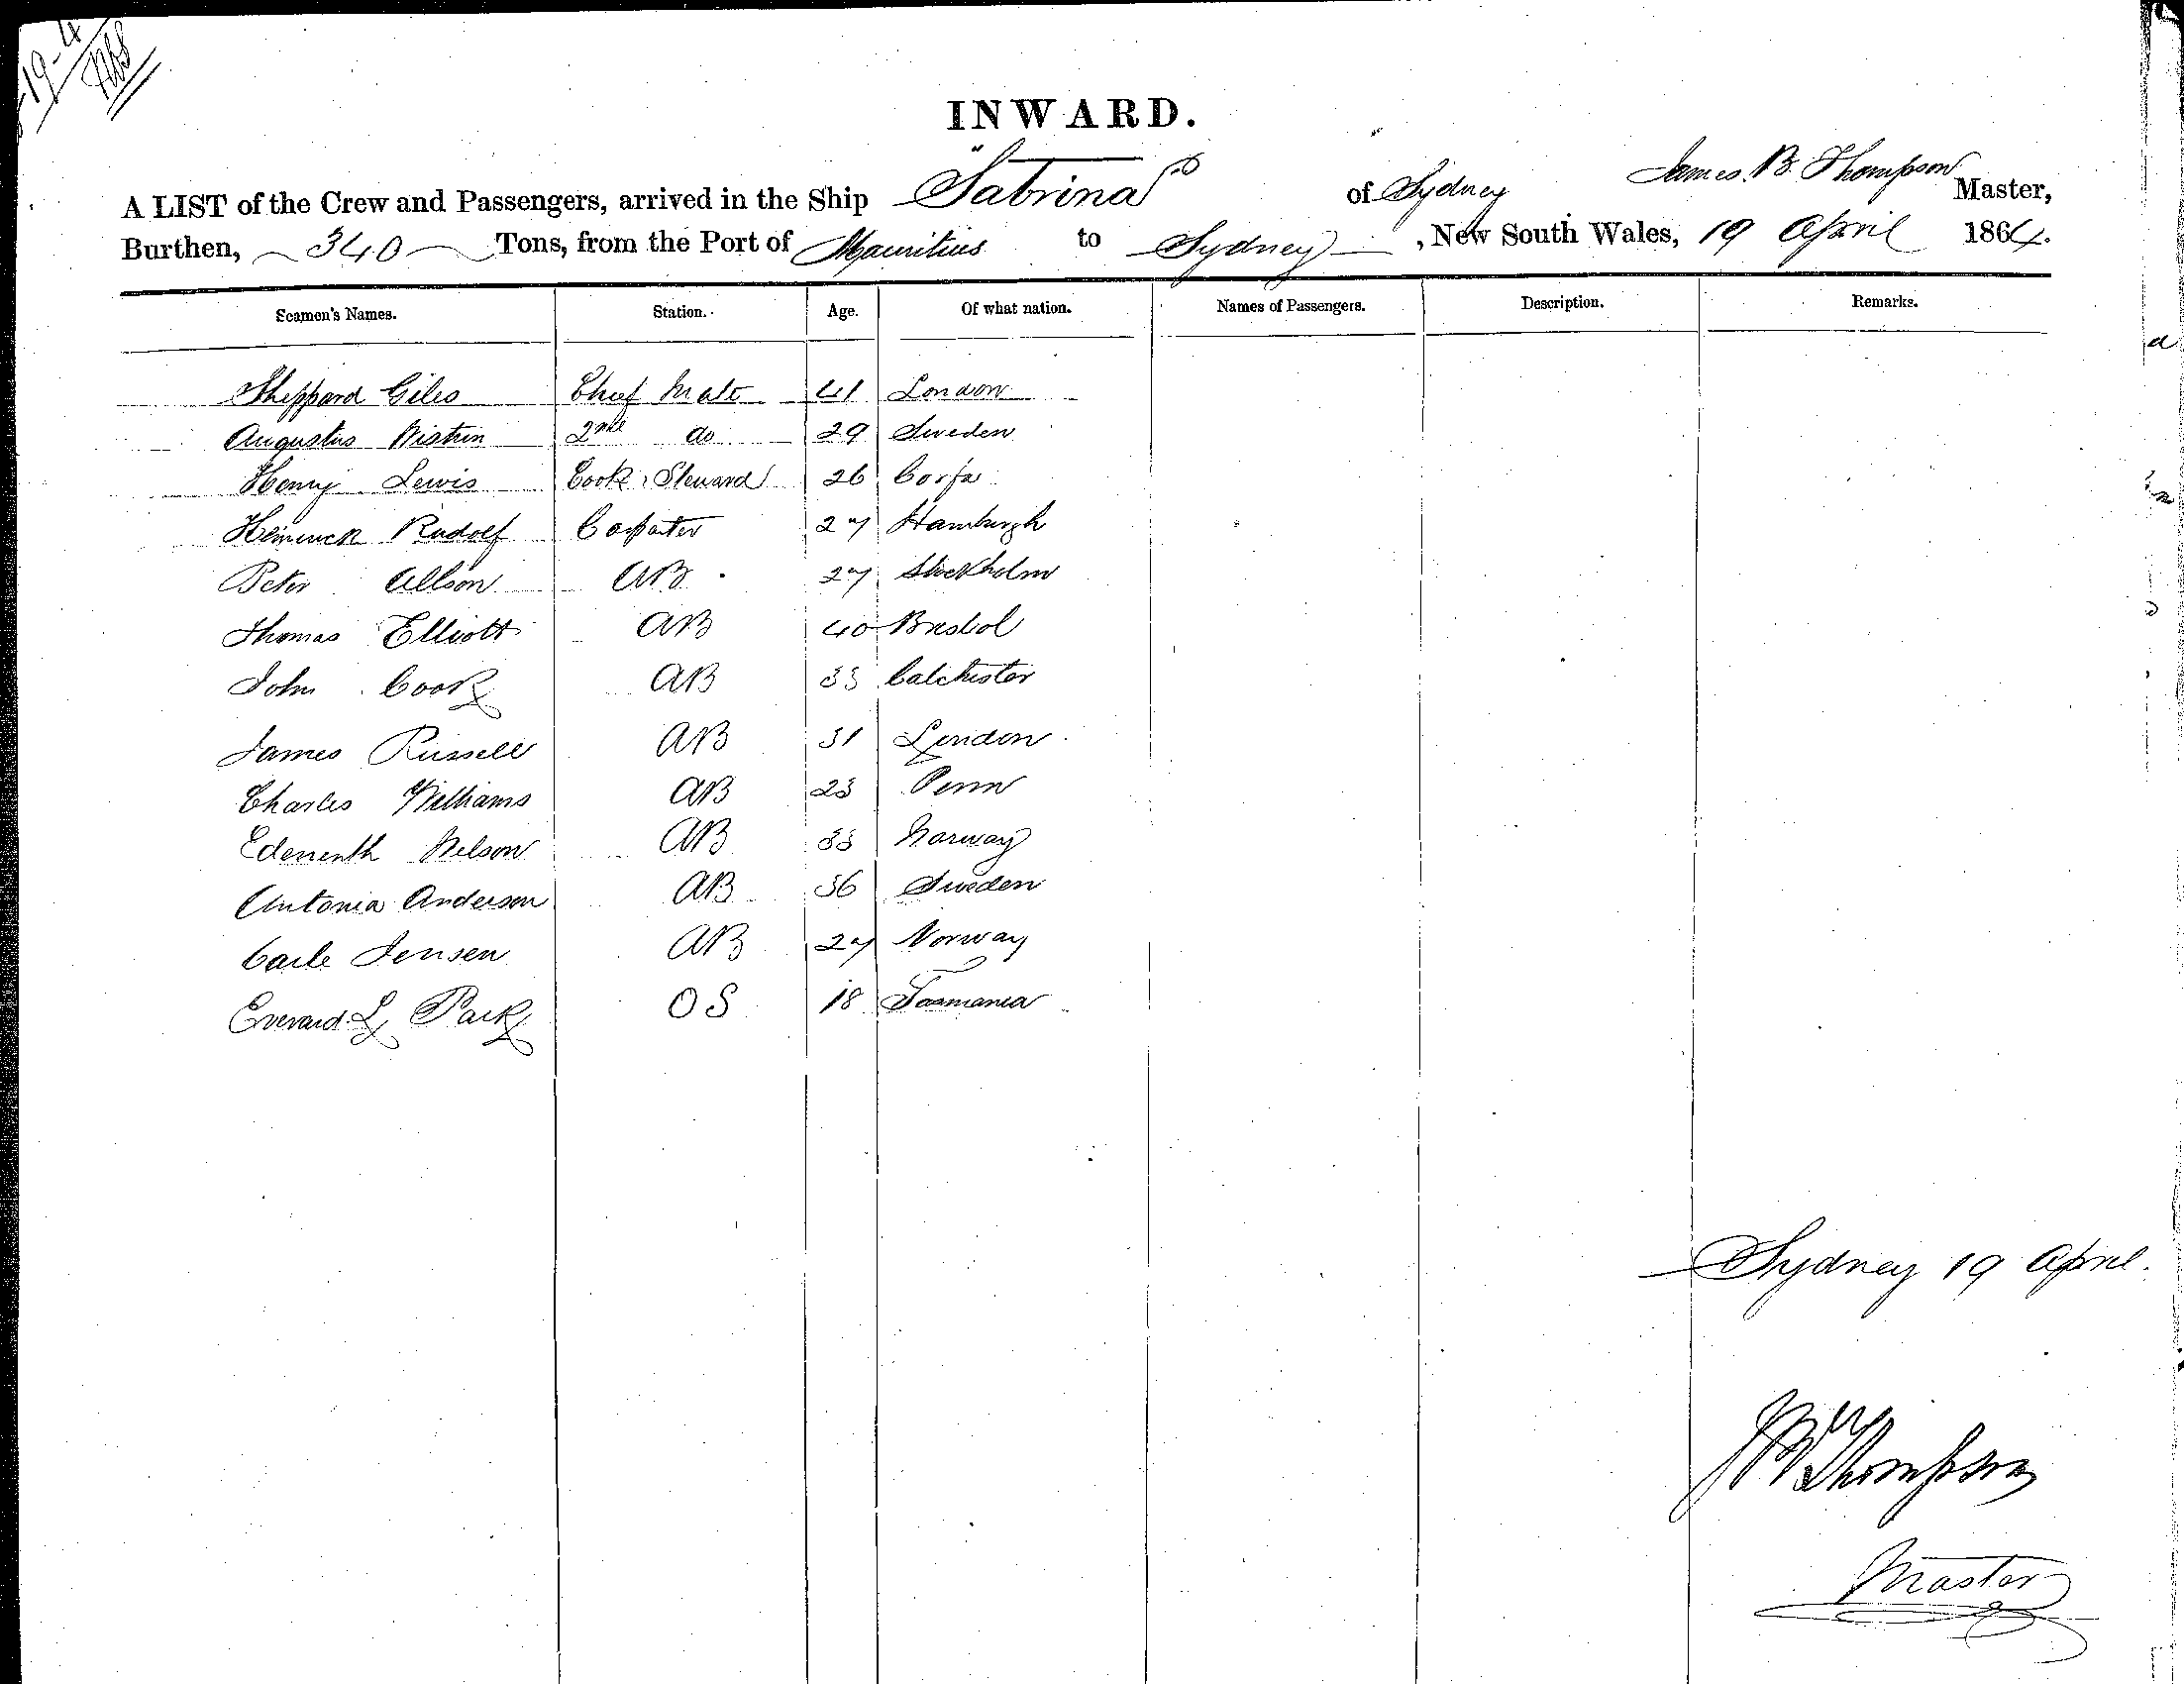 19-4
INWARD.
A LIST of the Crew and Passengers, arrived in the Ship "Sabrina" of Sydney James B. Thompson Master,
Burthen, 340 Tons, from the Port of Mauritius to Sydney, New South Wales, 19 April 1864.
Seamen's Names. Station. Age. Of what nation. Names of Passengers. Description. Remarks.
Sheppard Giles Chief Mate 41 London
Augustus 2nd do 29 Sweden
Henry Lewis Cook & Steward 26 Corfu
Rudolf Carpenter 27 Hamburgh
Peter Allson AB 27 Stockholm
Thomas Elliott AB 40 Bristol
John Cook AB 33 Calchester
James Russell AB 31 London
Charles Williams AB 23
Nelson AB 33 Norway
Antonia Anderson AB 36 Sweden
Carle Jensen AB 27 Norway
Everard L Park OS 18 Tasmania
Sydney 19 April.
Thompson
Master